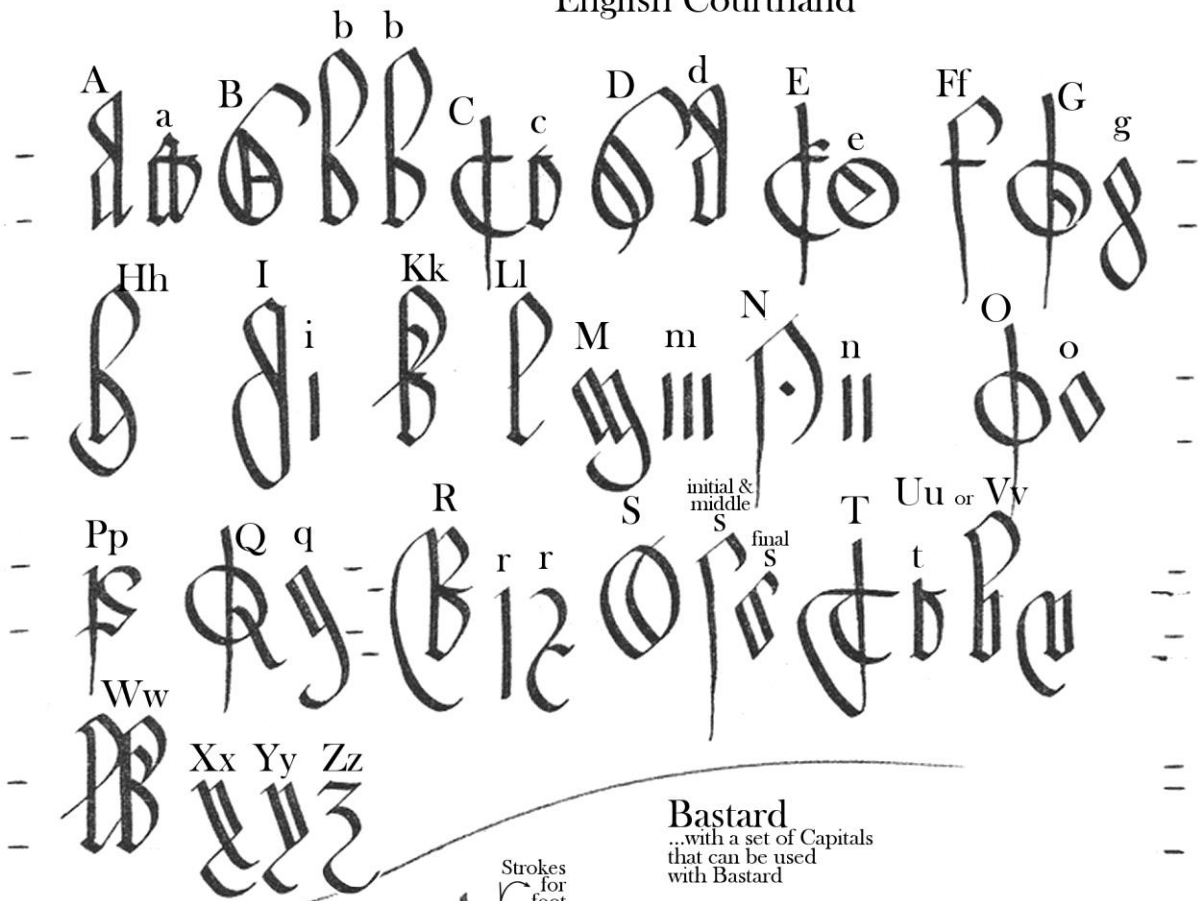 English Courthand
A a B b b C c D d E e Ff G g
Hh I i Kk Ll M m N n O o
Pp Q q R r r S initial & middle s final s T t Uu or Vv
Ww Xx Yy Zz
Bastard
...with a set of Capitals
that can be used
with Bastard
Strokes
for
foot